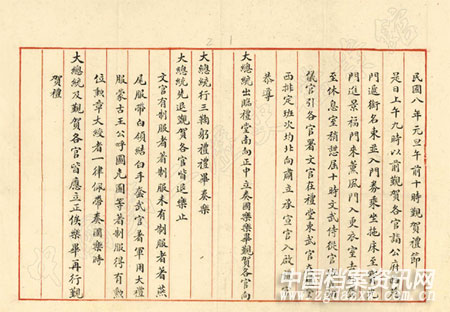 民國八年元旦午前十時覲賀禮節
是日上午九時以前覲賀各官詣公府
門遞銜名東至入門券乘坐拖床至
門進景福門來薰風門入更衣室
至休息室稍憩屆十時文武侍從官
儀官引各官署文官在禮堂東武官在
西排定班次均北向肅立承宣官入啟
恭導
大總統出臨禮堂南向正中立奏國樂樂畢覲賀各官向
大總統行三鞠躬禮禮畢奏樂
大總統先退覲賀各官皆退樂止
文官有制服者著制服未有制服者著燕
尾服帶白領結白手套武官著軍用大禮
服蒙古王公呼圖克圖等著制服得有勳
位勳章大綬者一律佩帶奏國樂時
大總統及覲賀各官皆應立正俟樂畢再行覲
賀禮
中国档案资讯网
www.zgdazxw.com.cn